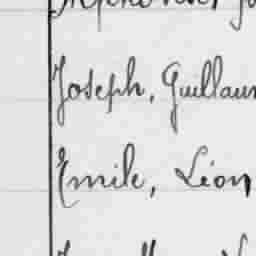 Joseph, Guillaum
Emile, Léon